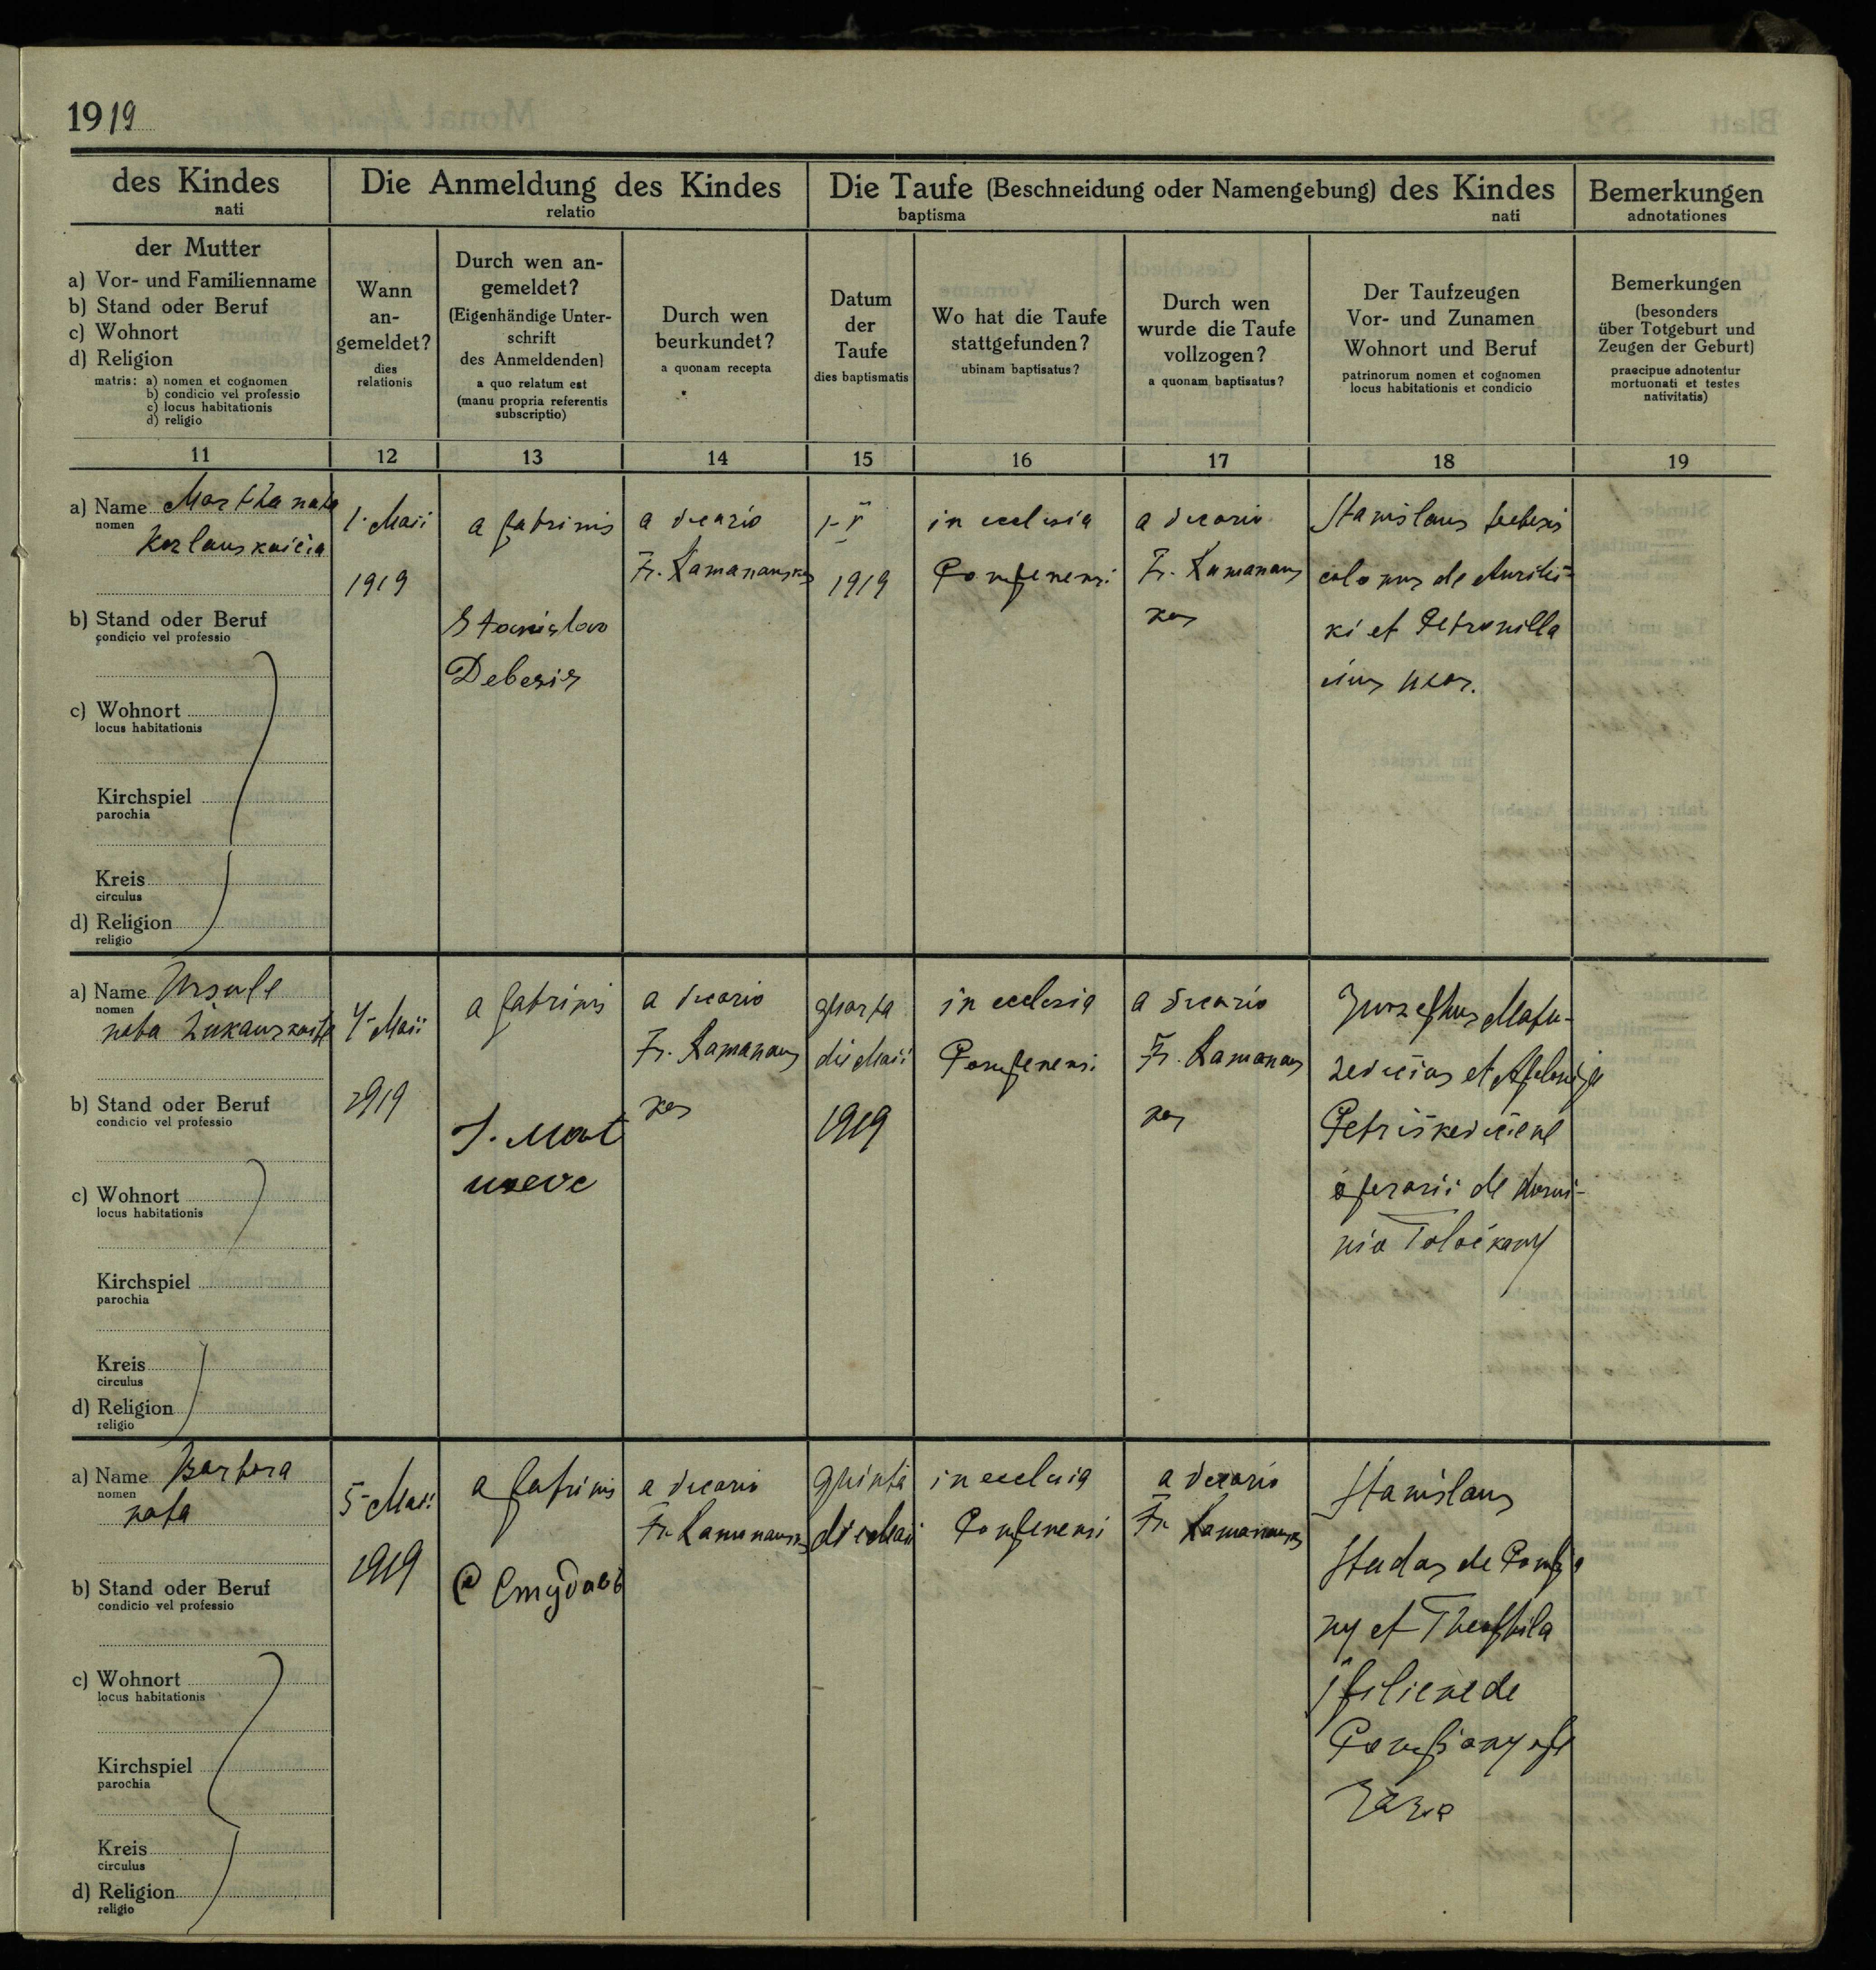 1919
des Kindes
nati
Die Anmeldung des Kindes
relatio
Die Taufe (Beschneidung oder Namengebung) des Kindes
baptisma nati
Bemerkungen
adnotationes
der Mutter
a) Vor- und Familienname
b) Stand oder Beruf
c) Wohnort
d) Religion
matris: a) nomen et cognomen
b) condicio vel professio
c) locus habitationis
d) religio
Wann
an-
gemeldet?
dies
relationis
Durch wen an-
gemeldet?
(Eigenhändige Unter-
schrift
des Anmeldenden)
a quo relatum est
(manu propria referentis
subscriptio)
Durch wen
beurkundet?
a quonam recepta
Datum
der
Taufe
dies baptismatis
Wo hat die Taufe
stattgefunden?
ubinam baptisatus?
Durch wen
wurde die Taufe
vollzogen?
a quonam baptisatus?
Der Taufzeugen
Vor- und Zunamen
Wohnort und Beruf
patrinorum nomen et cognomen
locus habitationis et condicio
Bemerkungen
(besonders
über Totgeburt und
Zeugen der Geburt)
praecipue adnotentur
mortuonati et testes
nativitatis)
11 12 13 14 15 16 17 18 19
a) Name Martha nata
nomen
b) Stand oder Beruf
condicio vel professio
c) Wohnort
locus habitationis
Kirchspiel
parochia
Kreis
circulus
d) Religion
religio
1 Maii
1919
a patrinis
Stanislao
Debesis
a vicario
Fr. Ramanauskas
1-V
1919
in ecclesia
Pompenensi
a vicario
Fr. Ramanaus
kas
Stanislaus Debesis
colonus de
ki et Petronilla
eius uxor.
a) Name Ursule
nomen
nata
b) Stand oder Beruf
condicio vel professio
c) Wohnort
locus habitationis
Kirchspiel
parochia
Kreis
circulus
d) Religion
religio
4 Maii
1919
a patrinis
J. Mat
a vicario
Fr. Ramanaus
kas
quarta
die Maii
1919
in ecclesia
Pompenensi
a vicario
Fr. Ramanaus
kas
et
Petriškevičiene
operarii de domi-
nio
a) Name Barbora
nomen
nata
b) Stand oder Beruf
condicio vel professio
c) Wohnort
locus habitationis
Kirchspiel
parochia
Kreis
circulus
d) Religion
religio
5 Maii
1919
a patrinis
a vicario
Fr. Ramanausk
quinta
die Maii
in ecclesia
Pompenensi
a vicario
Fr. Ramanausk
Stanislaus
de Pompia
ny et Theophila
de